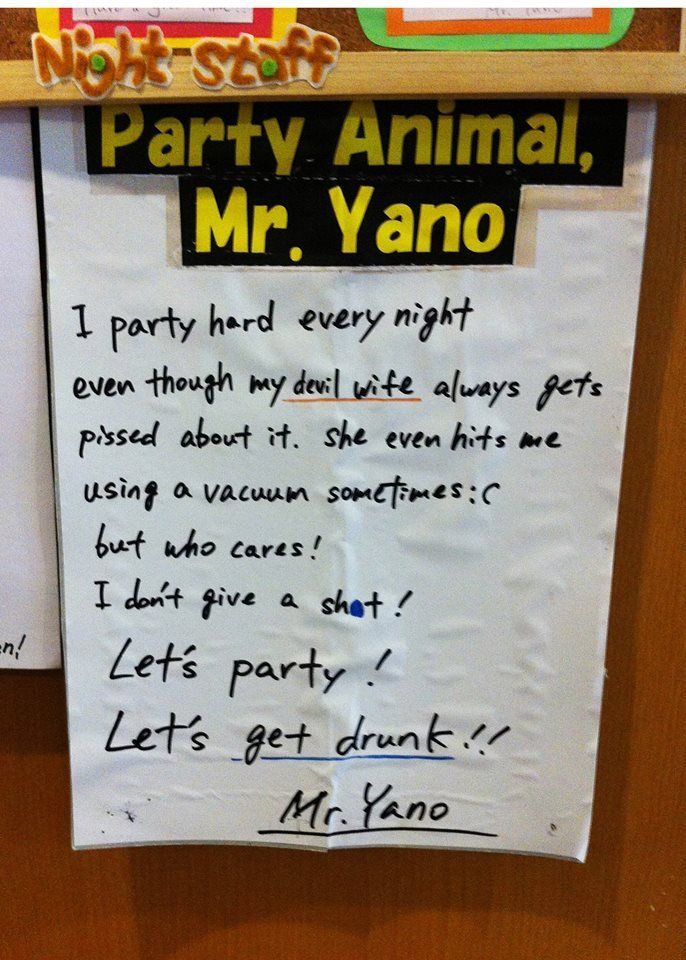 Mr. Yano
Night Staff
Party Animal,
Mr. Yano
I party hard every night
even though my devil wife always gets
pissed about it. She even hits me
using a vacuum sometimes:C
but who cares!
I don't give a shot!
Let's party!
Let's get drunk!!
Mr. Yano
n!